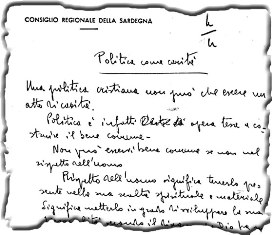 CONSIGLIO REGIONALE DELLA SARDEGNA
4/4
Politica come carità
Una politica cristiana non può che essere un
atto di carità.
Politica è infatti opera tesa a co-
struire il bene comune -
Non può esservi bene comune se non nel
rispetto dell'uomo
Rispetto dell'uomo significa tenerlo pre-
sente nella sua realtà spirituale e materiale
Significa metterlo in grado di sviluppare la sua